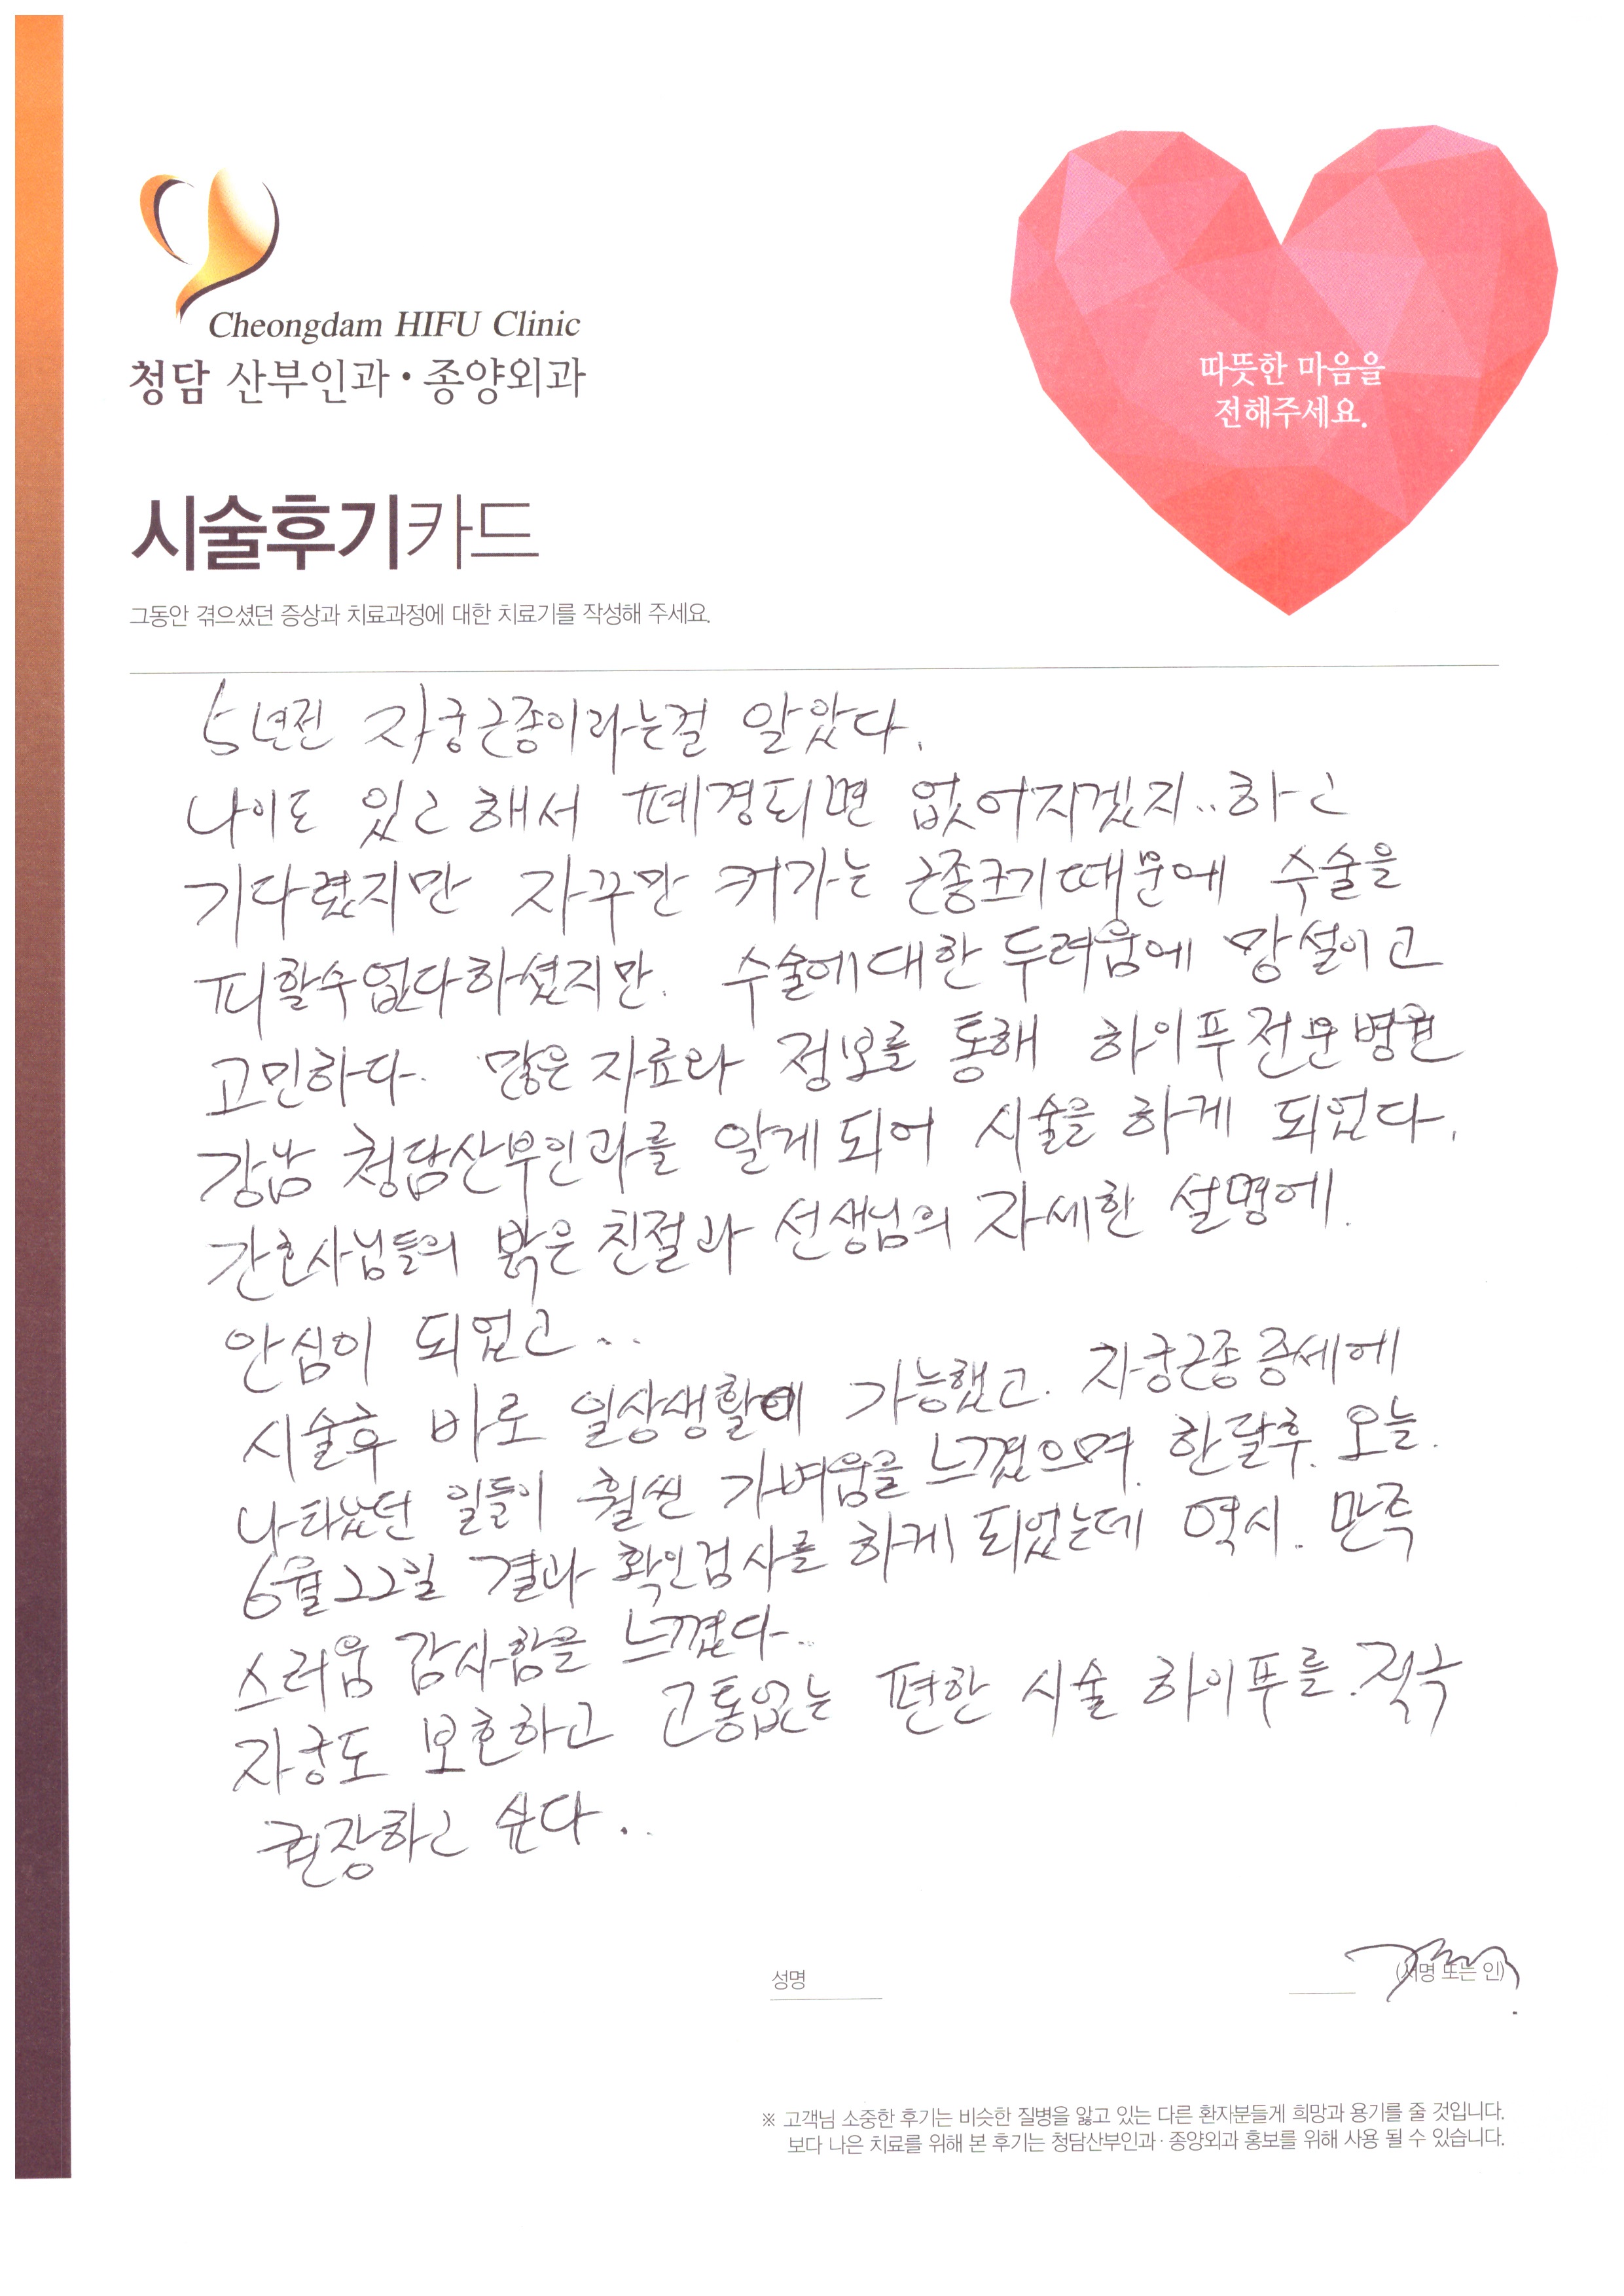 Cheongdam HIFU Clinic
청담 산부인과·종양외과
따뜻한 마음을
전해주세요.
시술후기카드
그동안 겪으셨던 증상과 치료과정에 대한 치료기를 작성해 주세요.
5년전 자궁근종이라는걸 알았다.
나이도 있고 해서 폐경되면 없어지겠지..하고
기다렸지만 자꾸만 커가는 근종크기때문에 수술을
피할수없다하셨지만. 수술에대한 두려움에 망설이고
고민하다. 많은 자료와 정보를 통해 하이푸전문병원
강남 청담산부인과를 알게되어 시술을 하게 되었다.
간호사님들의 밝은 친절과 선생님의 자세한 설명에.
안심이 되었고..
시술후 바로 일상생활이 가능했고. 자궁근종 증세에
나타났던 일들이 훨씬 가벼움을 느꼈으며. 한달후. 오늘.
6월22일 결과 확인검사를 하게 되었는데 역시. 만족
스러움 감사함을 느꼈다..
자궁도 보호하고 고통없는 편한 시술 하이푸를.적극
권장하고 싶다..
성명 (서명 또는 인)
※ 고객님 소중한 후기는 비슷한 질병을 앓고 있는 다른 환자분들게 희망과 용기를 줄 것입니다.
보다 나은 치료를 위해 본 후기는 청담산부인과·종양외과 홍보를 위해 사용 될 수 있습니다.